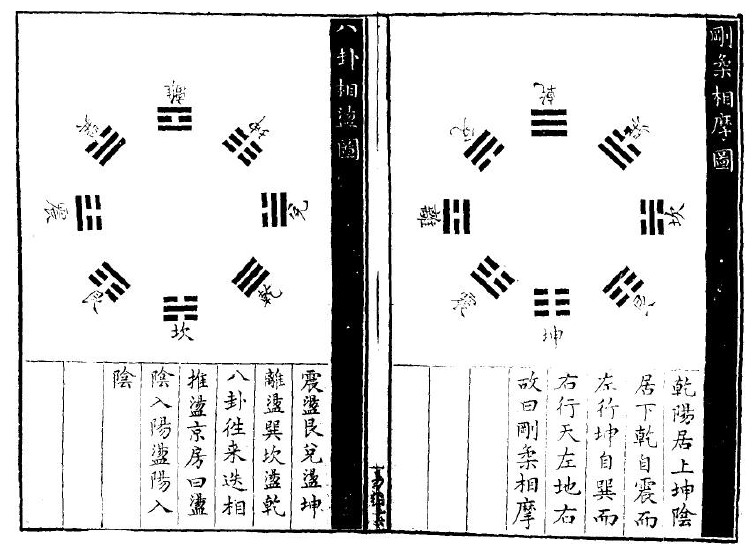 剛柔相摩圖
乾
巽
坎
艮
坤
震
離
兌
乾陽居上坤陰
居下乾自震而
左行坤自巽而
右行天左地右
故曰剛柔相摩
八卦相盪圖
離
坤
兌
乾
坎
艮
震
巽
震盪艮兌盪坤
離盪巽坎盪乾
八卦徃来迭相
推盪京房曰盪
陰入陽盪陽入
陰